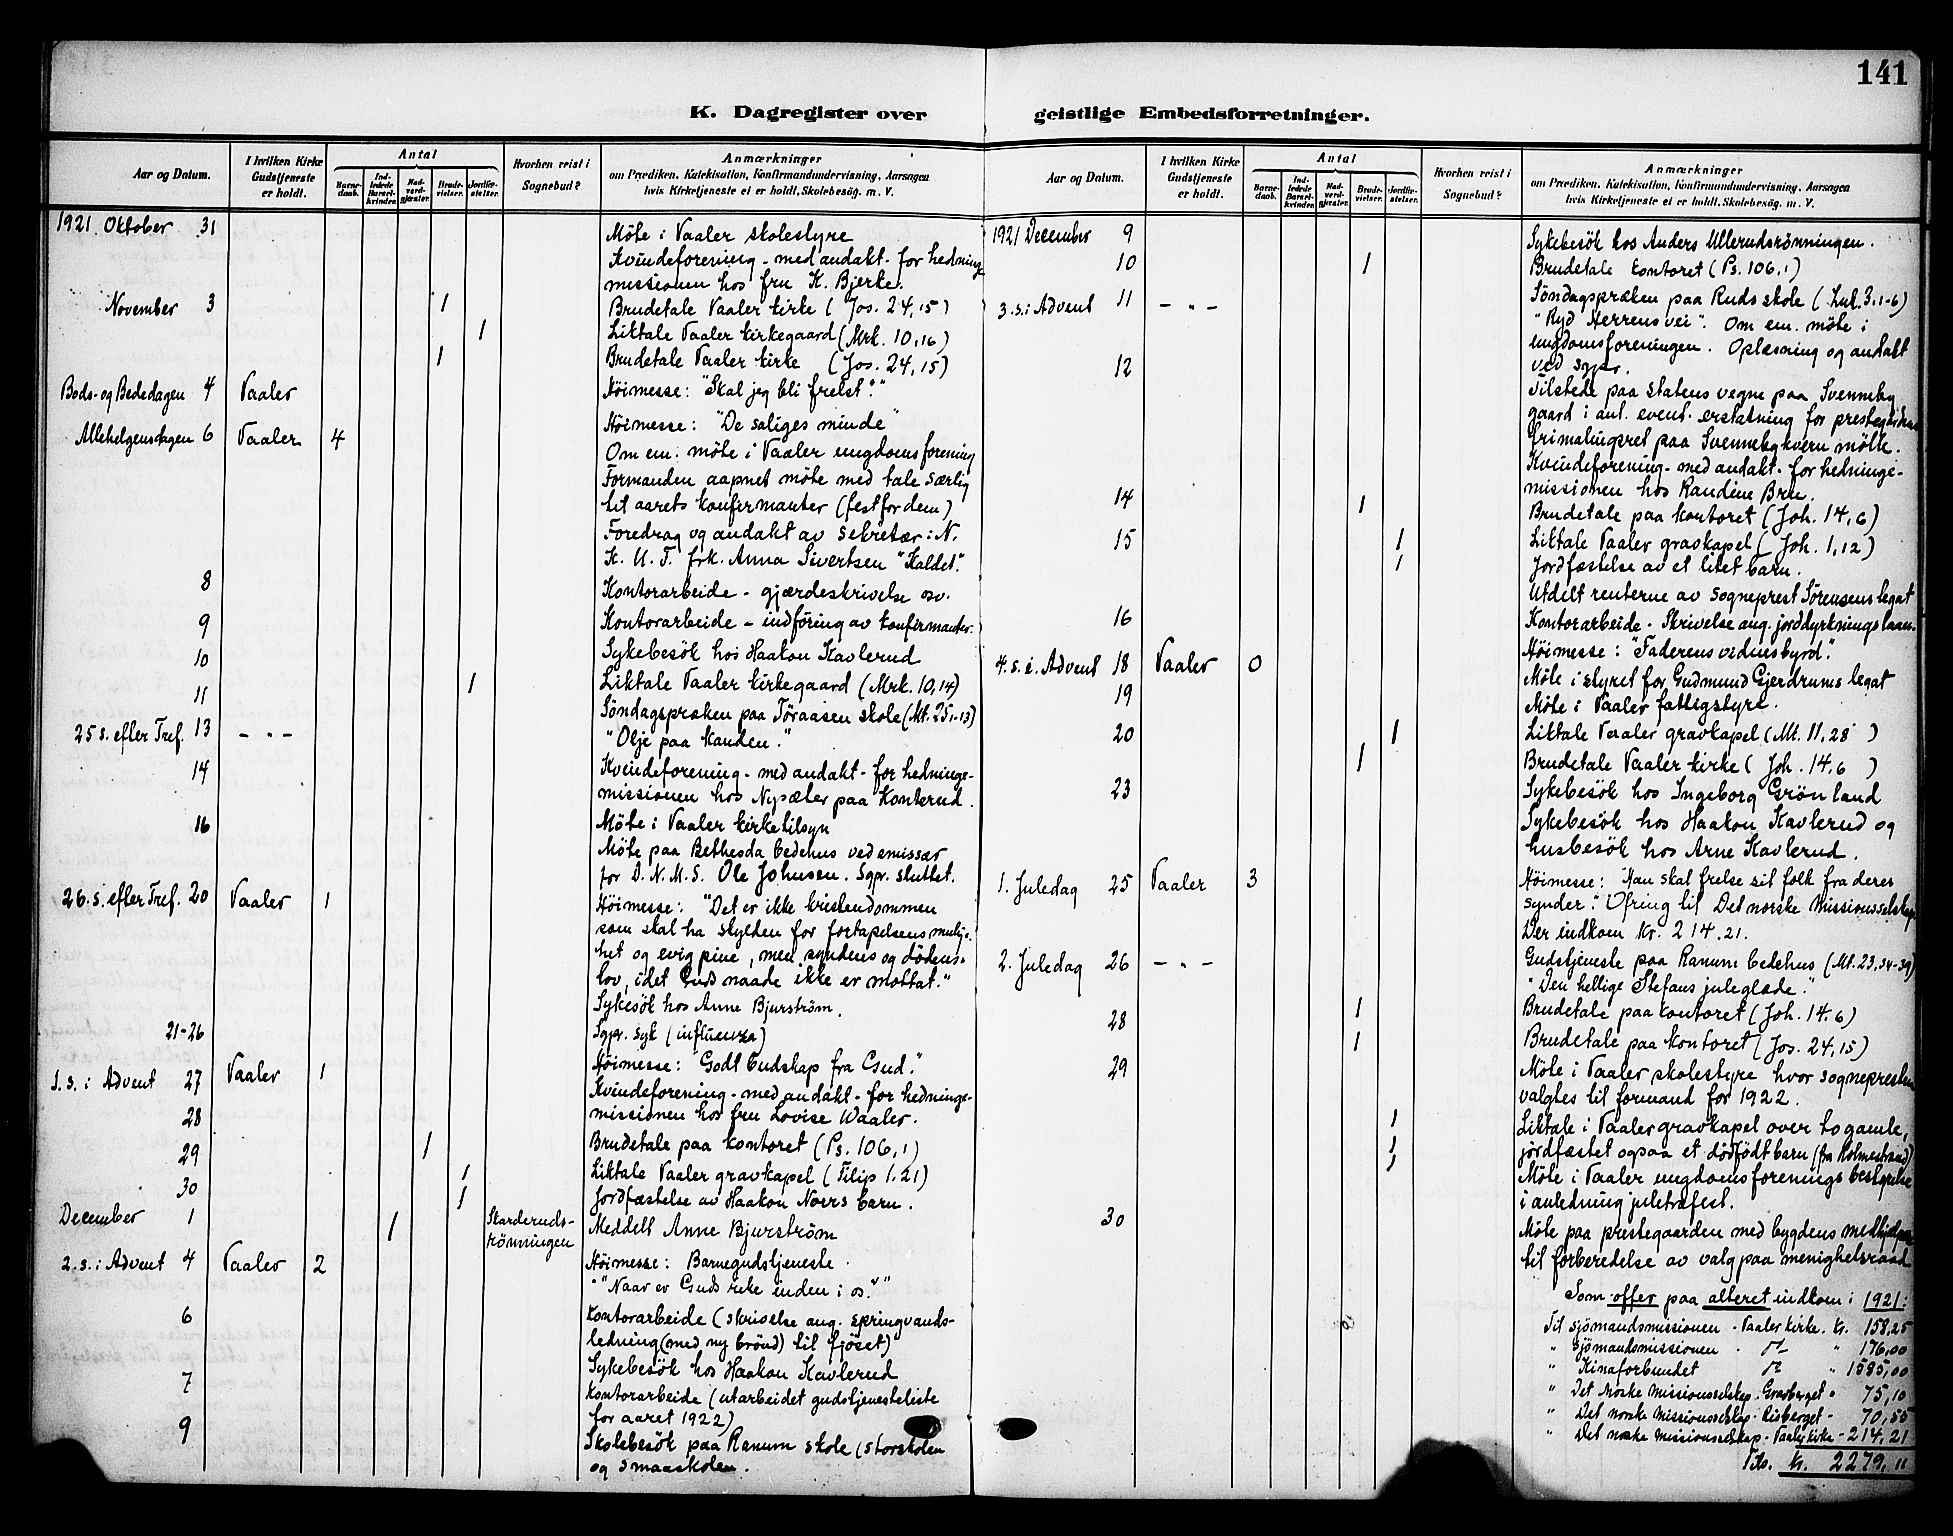 141
K. Dagregister over geistlige Embedsforretninger.
Aar og Datum.
I hvilken Kirke Gudstjeneste er holdt.
Antal
Barnedaab.
Indledede Barselkvinder.
Nadverdgjæster.
Brudevielser.
Jordfæstelser.
Hvorhen reist i Sognebud?
Anmærkninger
om Prædiken, Katekisation, Konfirmandundervisning, Aarsagen
hvis Kirketjeneste ei er holdt, Skolebesøg. m. V.
1921 Oktober 31 Möte i Vaaler skolestyre
Kvindeforening - med andakt - for hedning
missionen hos fru K. Bjerke.
November 3 1 Brudetale Vaaler kirke (Jos. 24,15)
1 Liktale Vaaler kirkegaard (Mrk. 10,16)
1 Brudetale Vaaler kirke (Jos. 24,15)
Bods- og Bededagen 4 Vaaler Höimesse: "Skal jeg bli frelst?"
Allehelgensdagen 6 Vaaler 4 Höimesse: "De saliges minde"
Om em. möte i Vaaler ungdomsforening
Formanden aapnet möte med tale særlig
til aarets konfirmanter (fest for dem)
Foredrag og andakt av sekretær i N.
K. U. F. frk. Anna Sivertsen "Kaldet".
8 Kontorarbeide - gjærdeskrivelse osv.
9 Kontorarbeide - indföring av konfirmanter.
10 Sykebesök hos Haakon Kavlerud
11 1 Liktale Vaaler kirkegaard (Mrk. 10,14)
25 s. efter Tref. 13 - " - Söndagspræken paa Töraasen skole (Mt. 25,1-13)
"Olje paa kanden."
14 Kvindeforening - med andakt - for hedninge-
missionen hos Nysæter paa Konterud.
16 Möte i Vaaler kirketilsyn
Möte paa Bethesda bedehus ved emissær
for D. N. M. S. Ole Johnsen. Sgpr. sluttet.
26. s. efter Tref. 20 Vaaler 1 Höimesse: "Det er ikke kristendommen
som skal ha skylden for fortapelsens mulig-
het og evig pine, men syndens og dödens
lov, idet Guds naade ikke er mottat."
Sykesök hos Anne Bjurström.
21-26 Sgpr. syk (influenza)
1. s. i Advent 27 Vaaler 1 Höimesse: "Godt budskap fra Gud."
28 Kvindeforening - med andakt - for hedninge-
missionen hos fru Lovise Waaler.
29 1 Brudetale paa kontoret (Ps. 106,1)
30 1 Liktale Vaaler gravkapel (Filip 1.21)
1 Jordfæstelse av Haakon Noers barn.
December 1 1 Skarderuds-
rönningen Meddelt Anne Bjurström
2. s. i Advent 4 Vaaler 2 Höimesse: Barnegudstjeneste.
"Naar er Guds rike inden i os?"
6 Kontorarbeide (skrivelse ang. springvands-
ledning (med ny brönd) til fjöset)
Sykebesök hos Haakon Kavlerud
7 Kontorarbeide (utarbeidet gudstjenesteliste
for aaret 1922)
9 Skolebesök paa Ranum skole (storskolen
og smaaskolen.
Aar og Datum.
I hvilken Kirke Gudstjeneste er holdt.
Antal
Barnedaab.
Indledede Barselkvinder.
Nadverdgjæster.
Brudevielser.
Jordfæstelser.
Hvorhen reist i Sognebud?
Anmærkninger
om Prædiken, Katekisation, Konfirmandundervisning, Aarsagen
hvis Kirketjeneste ei er holdt, Skolebesøg. m. V.
1921 December 9 Sykebesök hos Anders Ullerudsrönningen.
10 1 Brudetale kontoret (Ps. 106,1)
3. s. i Advent 11 - " - Söndagspræken paa Ruds skole (Luk. 3.1-6)
"Ryd Herrens vei". Om em. möte i
ungdomsforeningen. Oplæsning og andakt
ved sgpr.
12 Tilstede paa statens vegne paa Svenneby
gaard i anl. event. erstatning for prestegaardens
frimalingsret paa Svenneby kvern mölle.
Kvindeforening - med andakt - for hedninge-
missionen hos Randine Bru.
14 1 Brudetale paa kontoret (Joh. 14,6)
15 1 Liktale Vaaler gravkapel (Joh. 1,12)
1 Jordfæstelse av et litet barn.
Utdelt renterne av sogneprest Sörensens legat
16 Kontorarbeide - skrivelse ang. jorddyrkningslaan.
4. s. i Advent 18 Vaaler 0 Höimesse: "Faderens vidnesbyrd."
19 Möte i styret for Gudmund Gjerdrums legat
Möte i Vaaler fattigstyre.
20 1 Liktale Vaaler gravkapel (Mt. 11,28)
1 Brudetale Vaaler kirke (Joh. 14,6)
23 Sykebesök hos Ingeborg Grönland
Sykebesök hos Haakon Kavlerud og
husbesök hos Arne Kavlerud.
1. Juledag 25 Vaaler 3 Höimesse: "Han skal frelse sit folk fra deres
synder." Ofring til Det norske Missionsselskap
Der indkom kr. 214.21.
2. Juledag 26 - " - Gudstjeneste paa Ranum bedehus (Mt. 23,34-39)
"Den hellige Stefans juleglæde."
1 Brudetale paa kontoret (Joh. 14.6)
28 1 Brudetale paa kontoret (Jos. 24,15)
29 Möte i Vaaler skolestyre hvor sognepresten
valgtes til formand for 1922.
1 Liktale i Vaaler gravkapel over to gamle,
1
1 jordfæstet ogsaa et dödfödt barn (fra Holmestrand)
Möte i Vaaler ungdomsforenings bestyrelse
i anledning juletræfest.
30 Möte paa prestegaarden med bygdens
til forberedelse av valg paa menighetsraad
Som offer paa alteret indkom i 1921:
Til sjömandsmissionen - Vaaler kirke. kr. 158,25
" Sjömandsmissionen - " 176,00
" Kinaforbundet " 1585,00
" Det norske missionsselskap - Gravberget " 75,10
" Det norske missionsselskap - Risberget - 70,55
" Det norske missionsselskap - Vaaler kirke - 214,21
Tils. kr. 2279,11